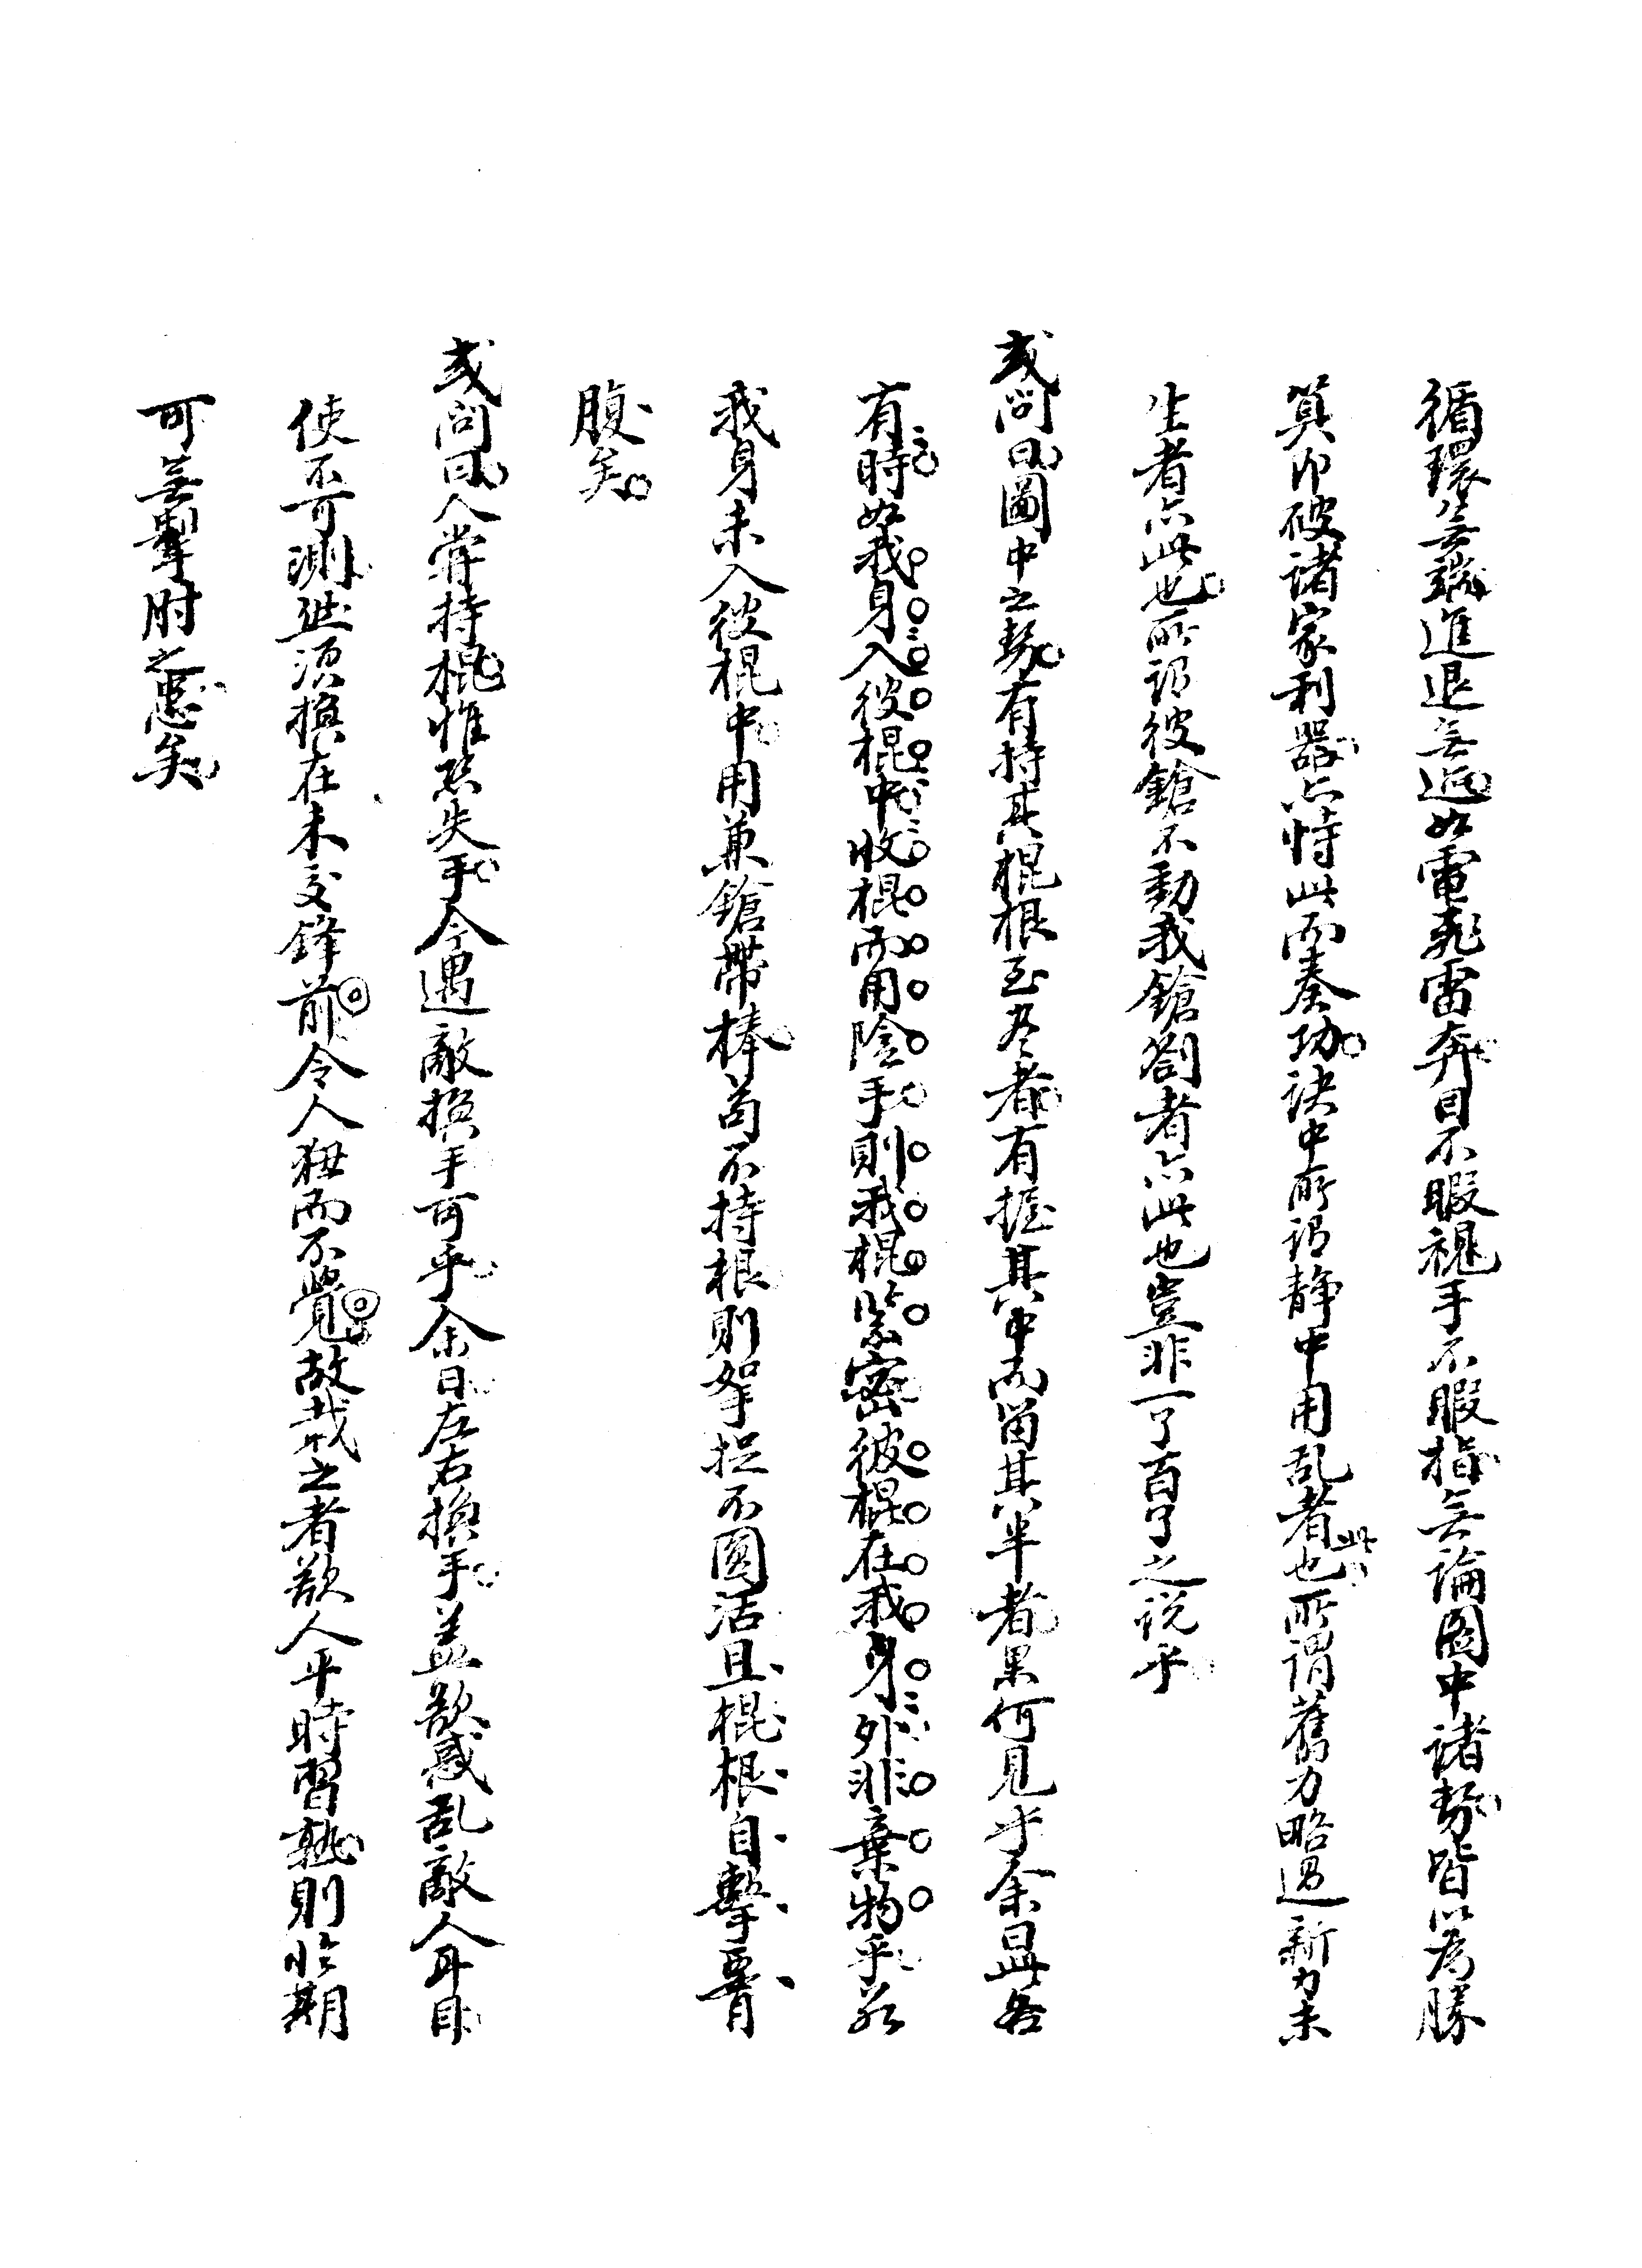 循環無端進退無迹如電飛雷奔目不暇視手不暇指無論圖中諸勢皆以為勝
筭即破諸家利器亦恃此而奏功訣中所謂静中用乱者此也所謂舊力略過新力未
生者亦此也所謂彼鎗不動我鎗劄者亦此也豈非一了百了之説乎
或問曰圖中之勢有持其棍根至尽者有握其中而留其半者果何見乎余曰此各
有時如我身入彼棍中收棍而用陰手則我棍紧密彼棍在我身外非棄物乎若
我身未入彼棍中用兼鎗帶棒苟不持根則拏捉不圓活且棍根自擊胷
腹矣
或問曰人嘗持棍惟恐失手今遇敵換手可乎余曰左右換手盖欲惑乱敵人耳目
使不可測然須換在未交鋒前令人狃而不覺故哉之者欲人平時習熟則臨期
可無掣肘之患矣